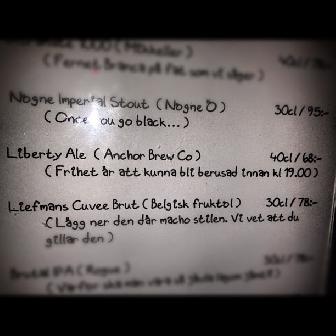 1000 (Mikkeller)
(Fernet Branca på fat som vi säger)
Nøgne Imperial Stout (Nøgne Ö) 30cl/95:-
(Once you go black...)
Liberty Ale (Anchor Brew Co) 40cl/68:-
(Frihet är att kunna bli berusad innan kl 19.00)
Liefmans Cuvee Brut (Belgisk fruktöl) 30cl/78:-
(Lägg ner den där macho stilen. Vi vet att du
gillar den)
Brutal IPA (Rogue)